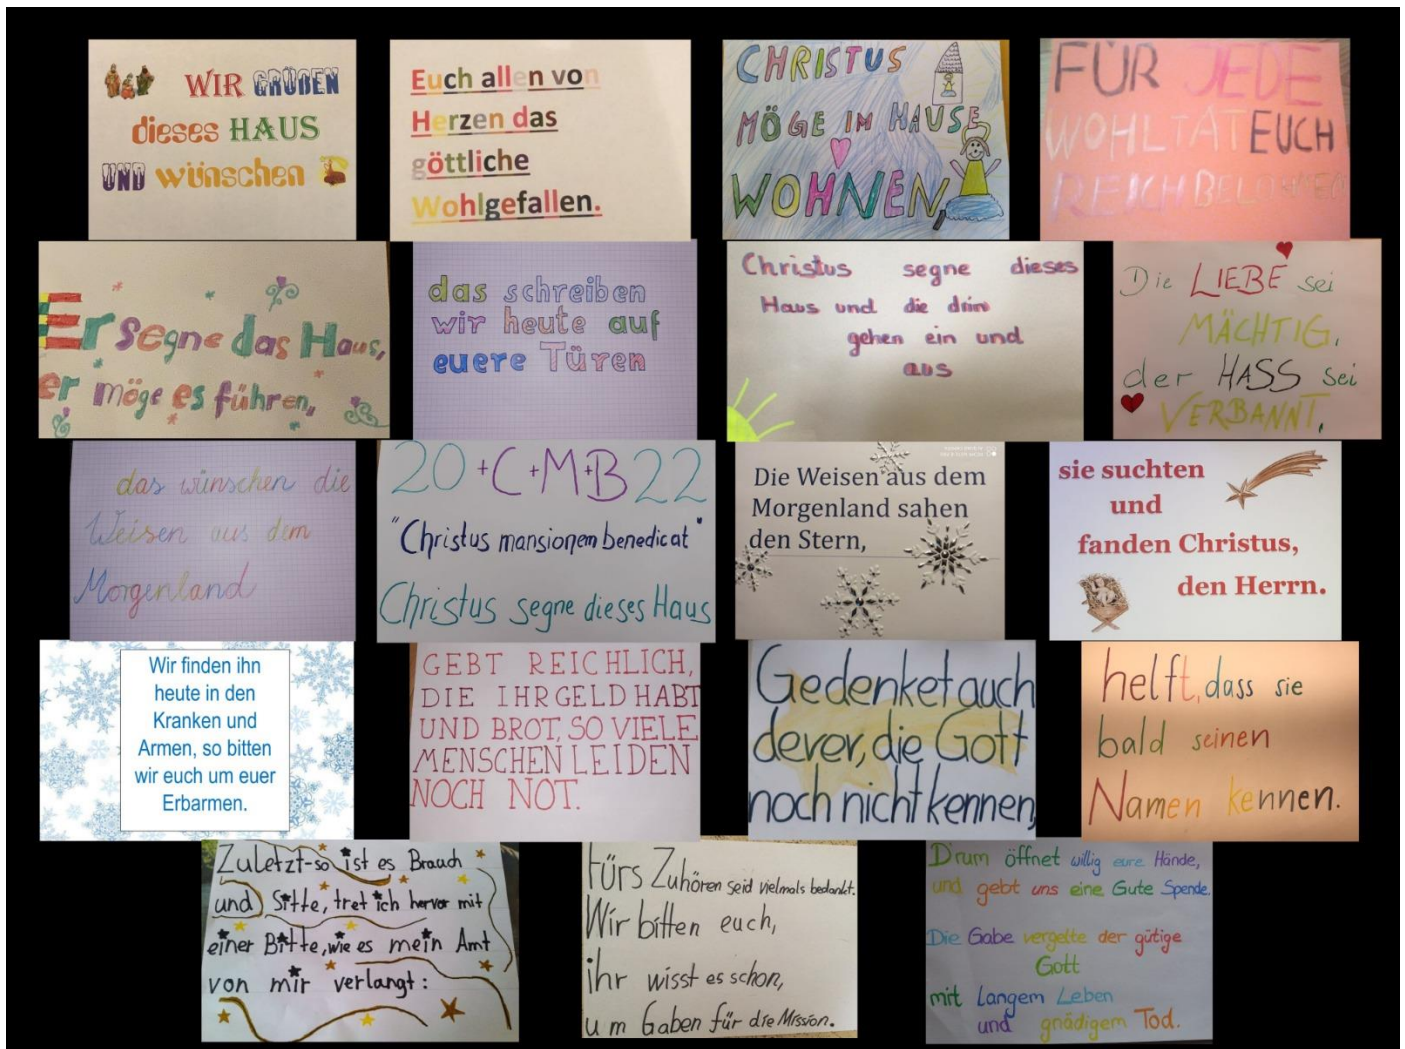 WIR GRÜßEN
dieses HAUS
UND wünschen
Euch allen von
Herzen das
göttliche
Wohlgefallen.
CHRISTUS
MÖGE IM HAUSE
WOHNEN,
FÜR JEDE
WOHLTAT EUCH
REICH BELOHNEN
Er segne das Haus,
er möge es führen,
das schreiben
wir heute auf
euere Türen
Christus segne dieses
Haus und die drin
gehen ein und
aus
Die LIEBE sei
MÄCHTIG,
der HASS sei
VERBANNT,
das wünschen die
Weisen aus dem
Morgenland
20+C+M+B22
"Christus mansionem benedicat"
Christus segne dieses Haus
Die Weisen aus dem
Morgenland sahen
den Stern,
sie suchten
und
fanden Christus,
den Herrn.
Wir finden ihn
heute in den
Kranken und
Armen, so bitten
wir euch um euer
Erbarmen.
GEBT REICHLICH,
DIE IHR GELD HABT
UND BROT, SO VIELE
MENSCHEN LEIDEN
NOCH NOT.
Gedenket auch
derer, die Gott
noch nicht kennen,
helft, dass sie
bald seinen
Namen kennen.
Zuletzt-so ist es Brauch
und Sitte, tret ich hervor mit
einer Bitte, wie es mein Amt
von mir verlangt:
Fürs Zuhören seid vielmals bedankt.
Wir bitten euch,
ihr wisst es schon,
um Gaben für die Mission.
Drum öffnet willig eure Hände,
und gebt uns eine Gute Spende.
Die Gabe vergelte der gütige
Gott
mit langem Leben
und gnädigem Tod.